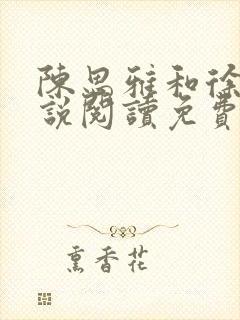 陳思雅和徐
說閱讀免費
熏香花